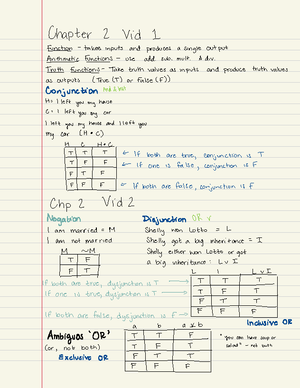 Chapter 2 Vid 1
Function - takes inputs and produces a single output
Arithmetic Functions - use add, sub, mult. & div.
Truth Functions - Take truth values as inputs and produce truth values
as outputs (True (T) or False (F))
Conjunction
H = I left you my house
C = I left you my car
I left you my house and I left you
my car (H • C)
H C H • C
T T T ← If both are true, conjunction is T
T F F ← if one is false, conjunction is F
F T F
F F F ← If both are false, conjunction is F
Chp 2 Vid 2
Negation
I am married = M
I am not married
M ~M
T F
F T
Disjunction OR v
Shelly won Lotto = L
Shelly got a big inheritance = I
Shelly either won Lotto or got
a big inheritance : L v I
L I L v I
If both are true, dysjunction is T → T T T
If one is true, dysjunction is T → T F T
F T T
If both are false, dysjunction is F → F F F
Inclusive OR
Ambiguos 'OR'
(or, not both)
Exclusive OR
a b a x b
T T F
T F T
F T T
F F F
"you can have soup or
salad" - not both